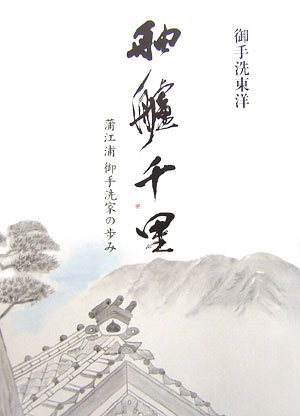 御手洗東洋
舳艫千里
蒲江浦 御手洗家の歩み